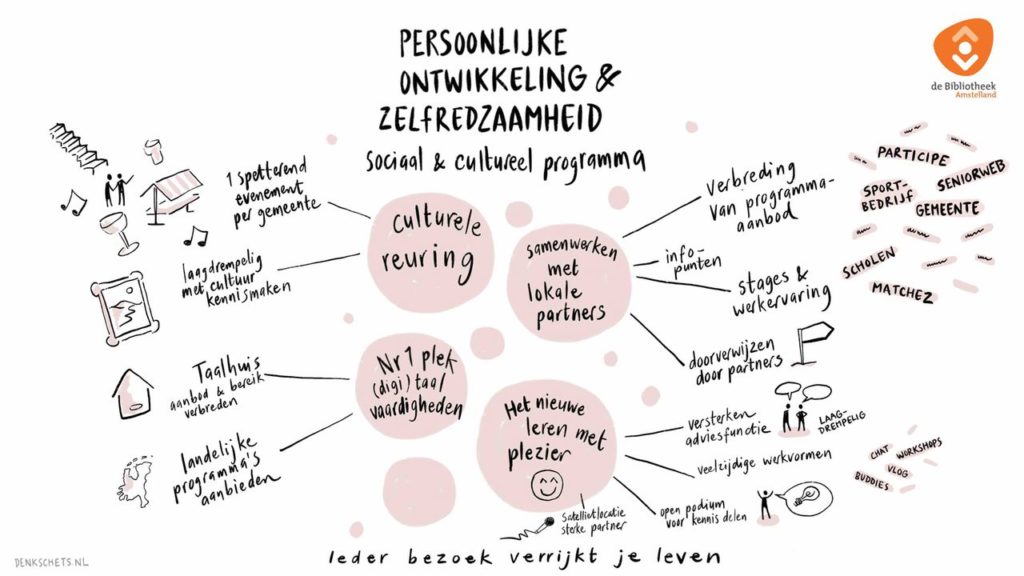 PERSOONLIJKE
ONTWIKKELING &
ZELFREDZAAMHEID
sociaal & cultureel programma
de Bibliotheek
Amstelland
1 spetterend
evenement
per gemeente
laagdrempelig
met cultuur
kennismaken
culturele
reuring
samenwerken
met
lokale
partners
verbreding
van programma-
aanbod
info-
punten
stages &
werkervaring
doorverwijzen
door partners
PARTICIPE
SENIORWEB
SPORT-
BEDRIJF
GEMEENTE
SCHOLEN
MATCHEZ
Nr 1 plek
(digi) taal
vaardigheden
Taalhuis
aanbod & bereik
verbreden
landelijke
programma's
aanbieden
Het nieuwe
leren met
plezier
versterken
adviesfunctie
LAAG-
DREMPELIG
veelzijdige werkvormen
CHAT
WORKSHOPS
VLOG
BUDDIES
open podium
voor kennis delen
Satellietlocatie
sterke partner
Ieder bezoek verrijkt je leven
DENKSCHETS.NL